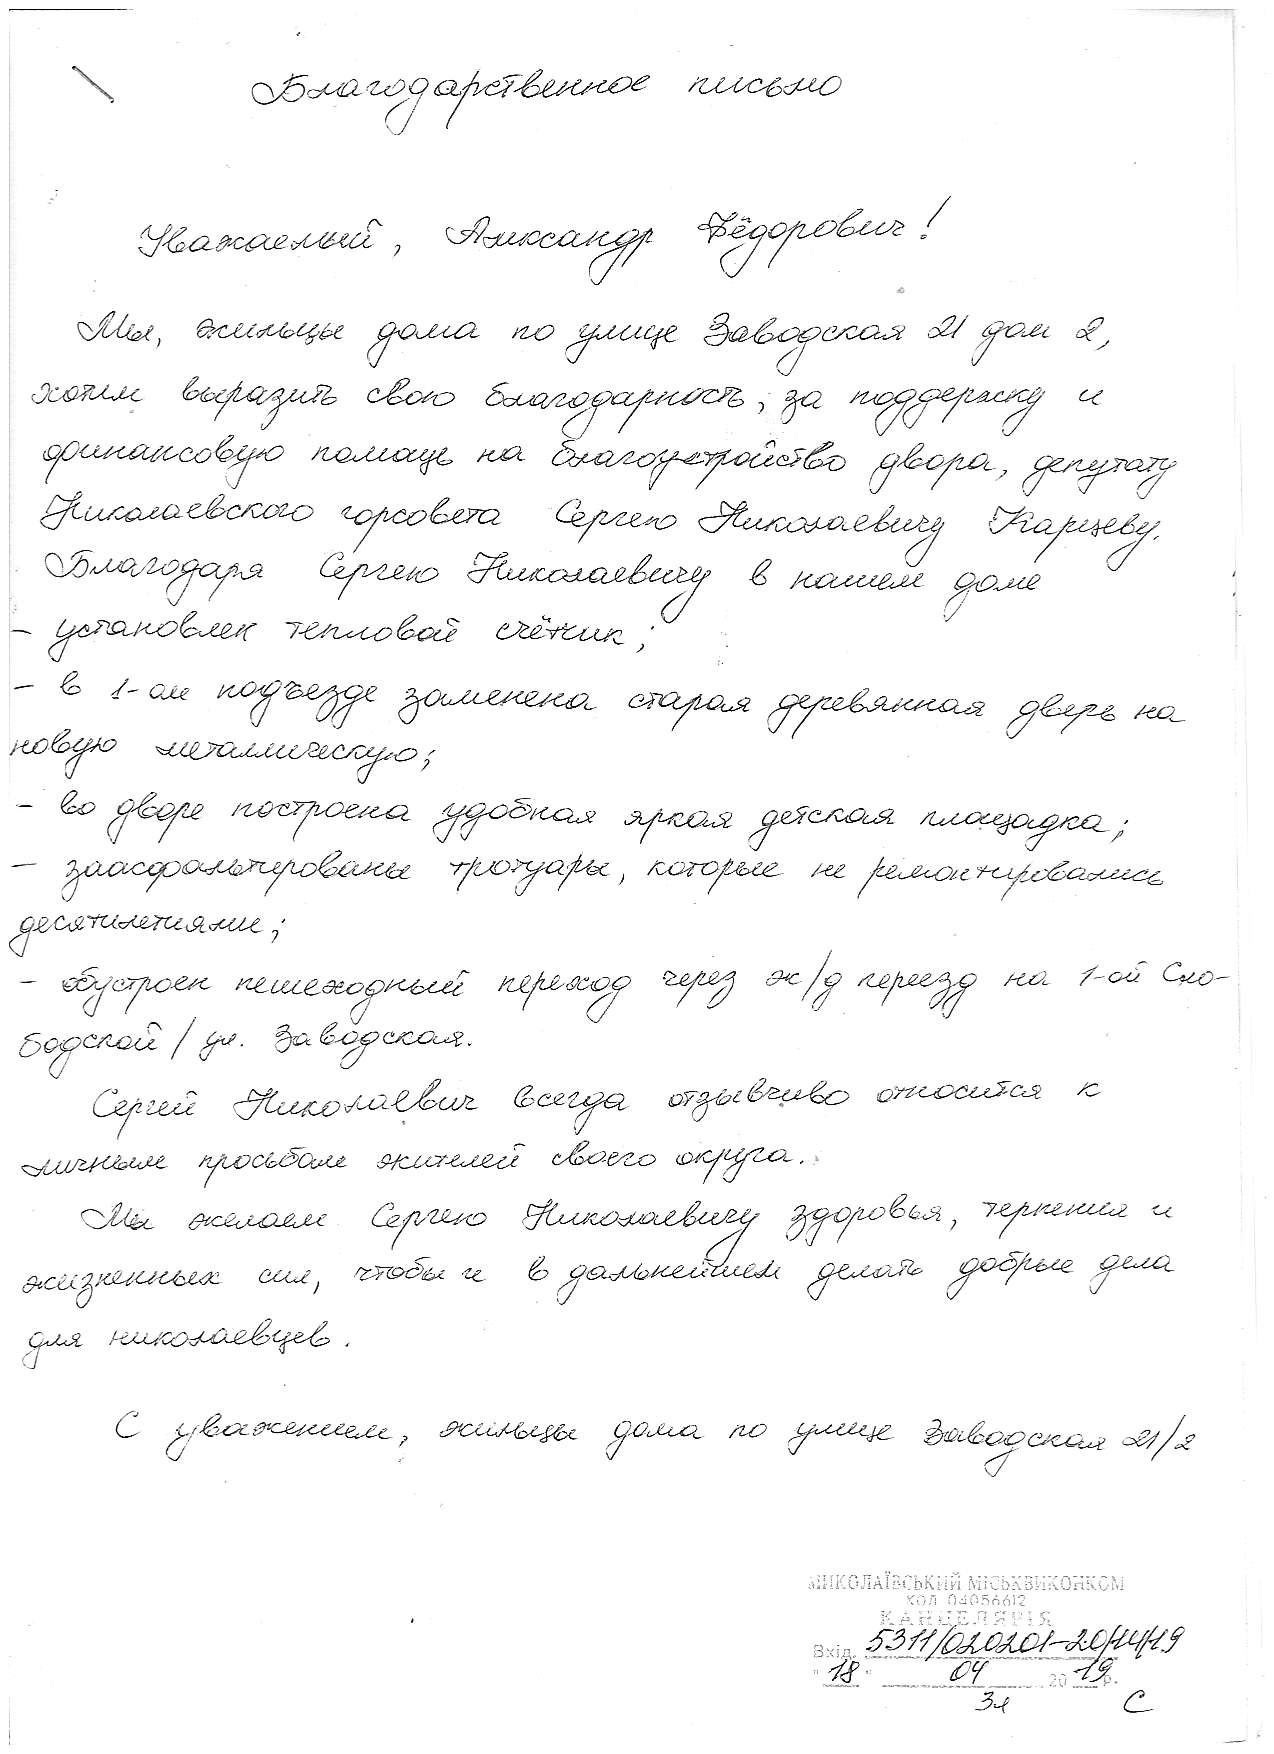 Благодарственное письмо
Уважаемый, Александр Фёдорович!
Мы, жильцы дома по улице Заводская 21 дом 2,
хотим выразить свою благодарность, за поддержку и
финансовую помощь на благоустройство двора, депутату
Николаевского горсовета Сергею Николаевичу Карцеву.
Благодаря Сергею Николаевичу в нашем доме
- установлен тепловой счётчик;
- в 1-ом подъезде заменена старая деревянная дверь на
новую металлическую;
- во дворе построена удобная яркая детская площадка;
- заасфальтированы тротуары, которые не ремонтировались
десятилетиями;
- обустроен пешеходный переход через ж/д переезд на 1-ой Сло-
бодской / ул. Заводская.
Сергей Николаевич всегда отзывчиво относится к
личным просьбам жителей своего округа.
Мы желаем Сергею Николаевичу здоровья, терпения и
жизненных сил, чтобы и в дальнейшем делать добрые дела
для николаевцев.
С уважением, жильцы дома по улице Заводская 21/2
МИКОЛАЇВСЬКИЙ МІСЬКВИКОНКОМ
КОД 04056612
КАНЦЕЛЯРІЯ
Вхід. 5311/020201-20/14/19
"18" 04 2019р.
Зл С